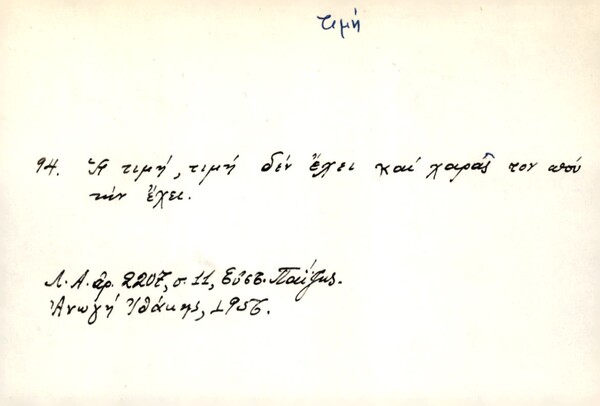 τιμή
94. Ἡ τιμή, τιμή δέν ἔχει καί χαρᾶς τον ἀπού
τήν ἔχει.
Λ. Α. ἀρ. 2207, σ. 11, Εὐστ. Παΐζης.
Ἀνωγή Ἰθάκης,